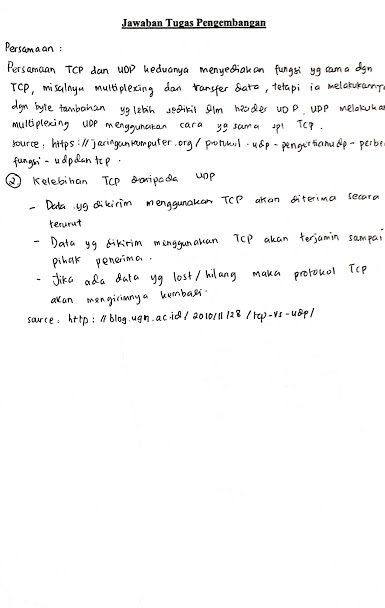 Jawaban Tugas Pengembangan
Persamaan :
Persamaan TCP dan UDP keduanya menyediakan fungsi yg sama dgn
TCP, misalnya multiplexing dan transfer data, tetapi ia melakukannya
dgn byte tambahan yg lebih sedikit dlm header UDP. UDP melakukan
multiplexing UDP menggunakan cara yg sama spt TCP.
source : https://jaringankomputer.org/protokol-udp-pengertianudp-perbe
fungsi-udpdan tcp.
② Kelebihan TCP daripada UDP
- Data yg dikirim menggunakan TCP akan diterima secara
terurut
- Data yg dikirim menggunakan TCP akan terjamin sampai
pihak penerima.
- Jika ada data yg lost/hilang maka protokol TCP
akan mengirimnya kembali.
source : http://blog.ugm.ac.id/2010/11/28/tcp-vs-udp/